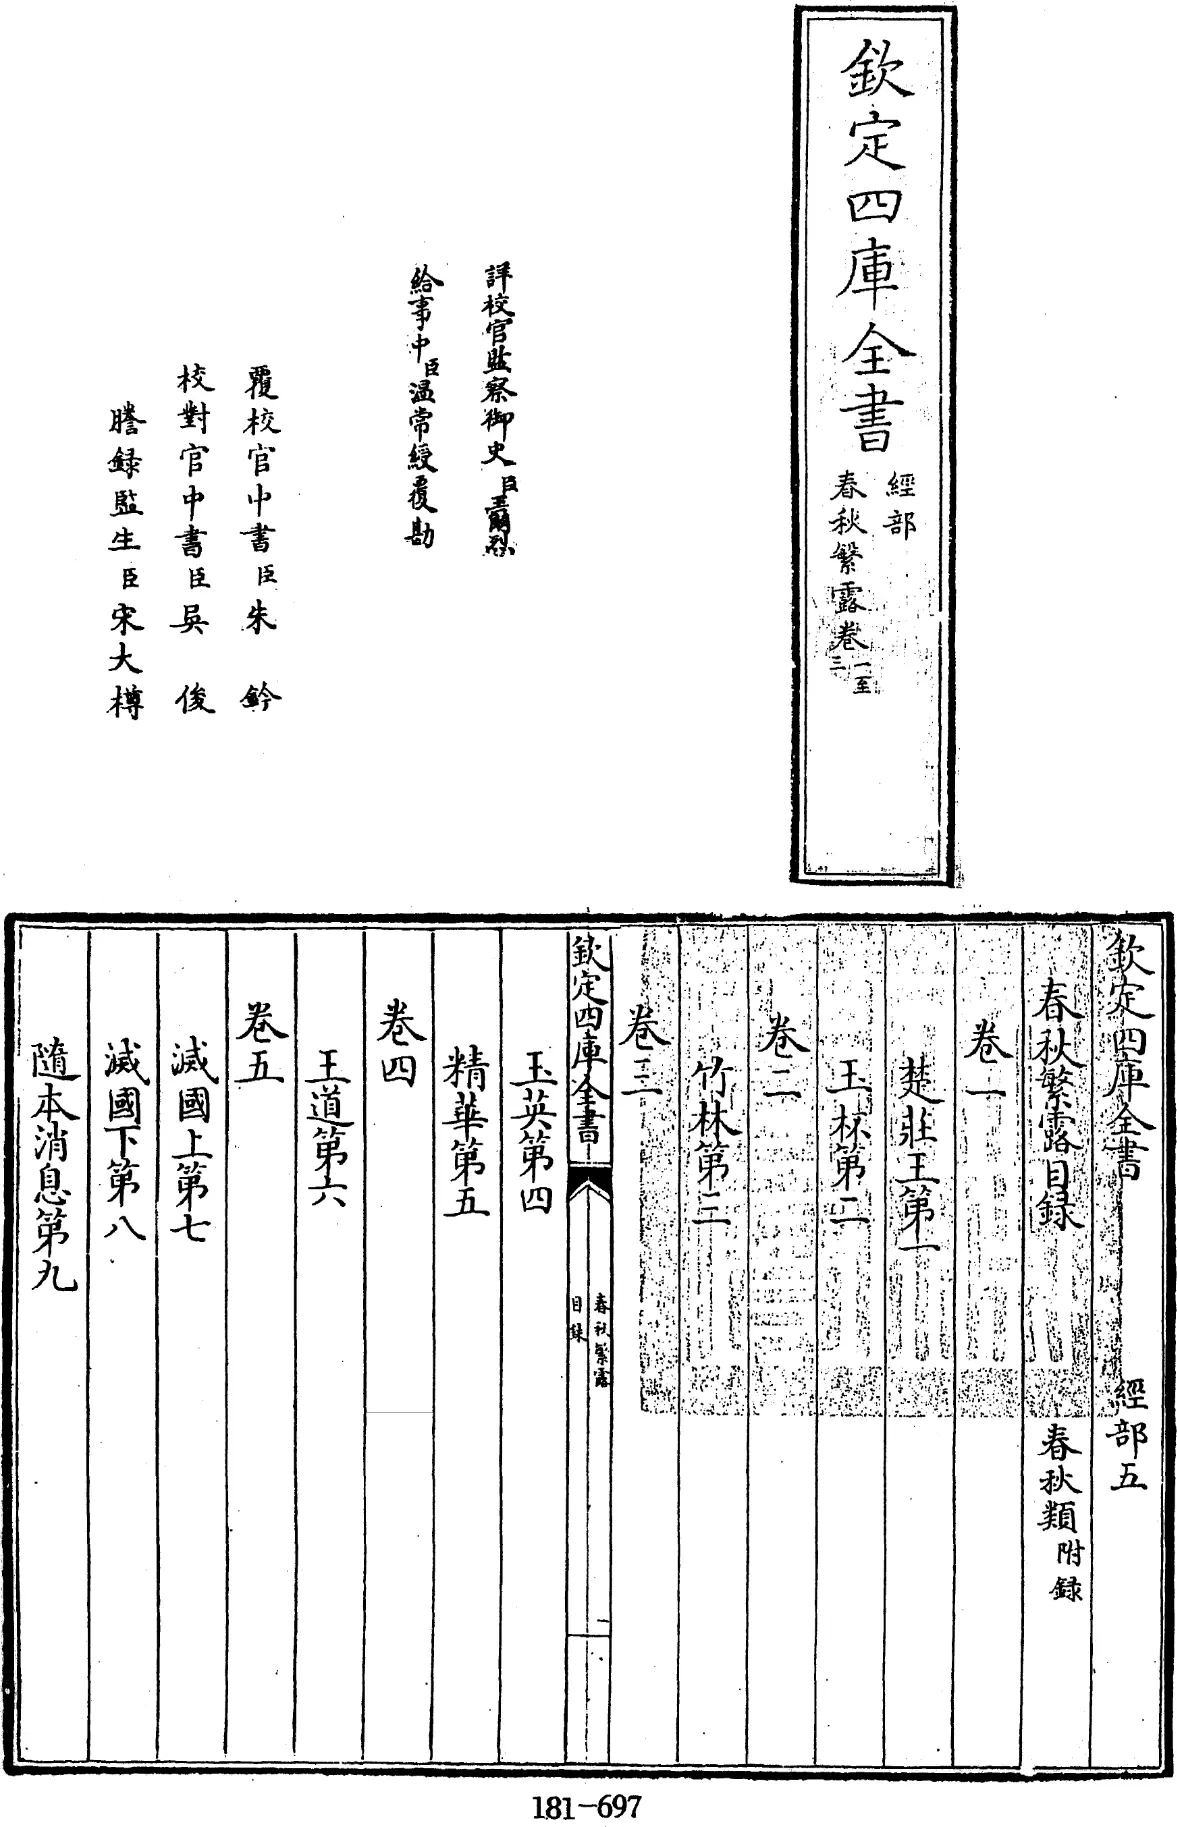 欽定四庫全書
經部
春秋繁露卷一至三
詳校官監察御史臣
給事中臣溫常綬覆勘
覆校官中書臣朱鈐
校對官中書臣吳俊
謄錄監生臣宋大樽
欽定四庫全書 經部五
春秋繁露目錄 春秋類附錄
卷一
楚莊王第一
玉杯第二
卷二
竹林第三
卷三
欽定四庫全書
春秋繁露
目錄
一
玉英第四
精華第五
卷四
王道第六
卷五
滅國上第七
滅國下第八
隨本消息第九
181-697